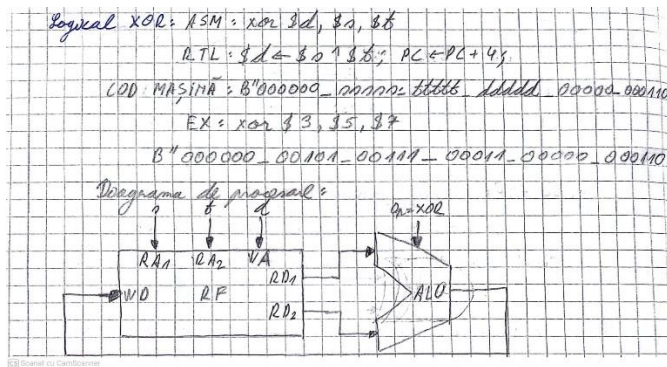 Logical XOR: ASM: xor $d, $s, $t
RTL: $d ← $s ^ $t; PC ← PC + 4;
COD MAȘINĂ: B"000000_sssss_ttttt_ddddd_00000_000110
EX: xor $3, $5, $7
B"000000_00101_00111_00011_00000_000110
Diagrama de procesare:
s t d Op=XOR
RA1 RA2 WA
RD1
WD RF ALU
RD2
Scanat cu CamScanner